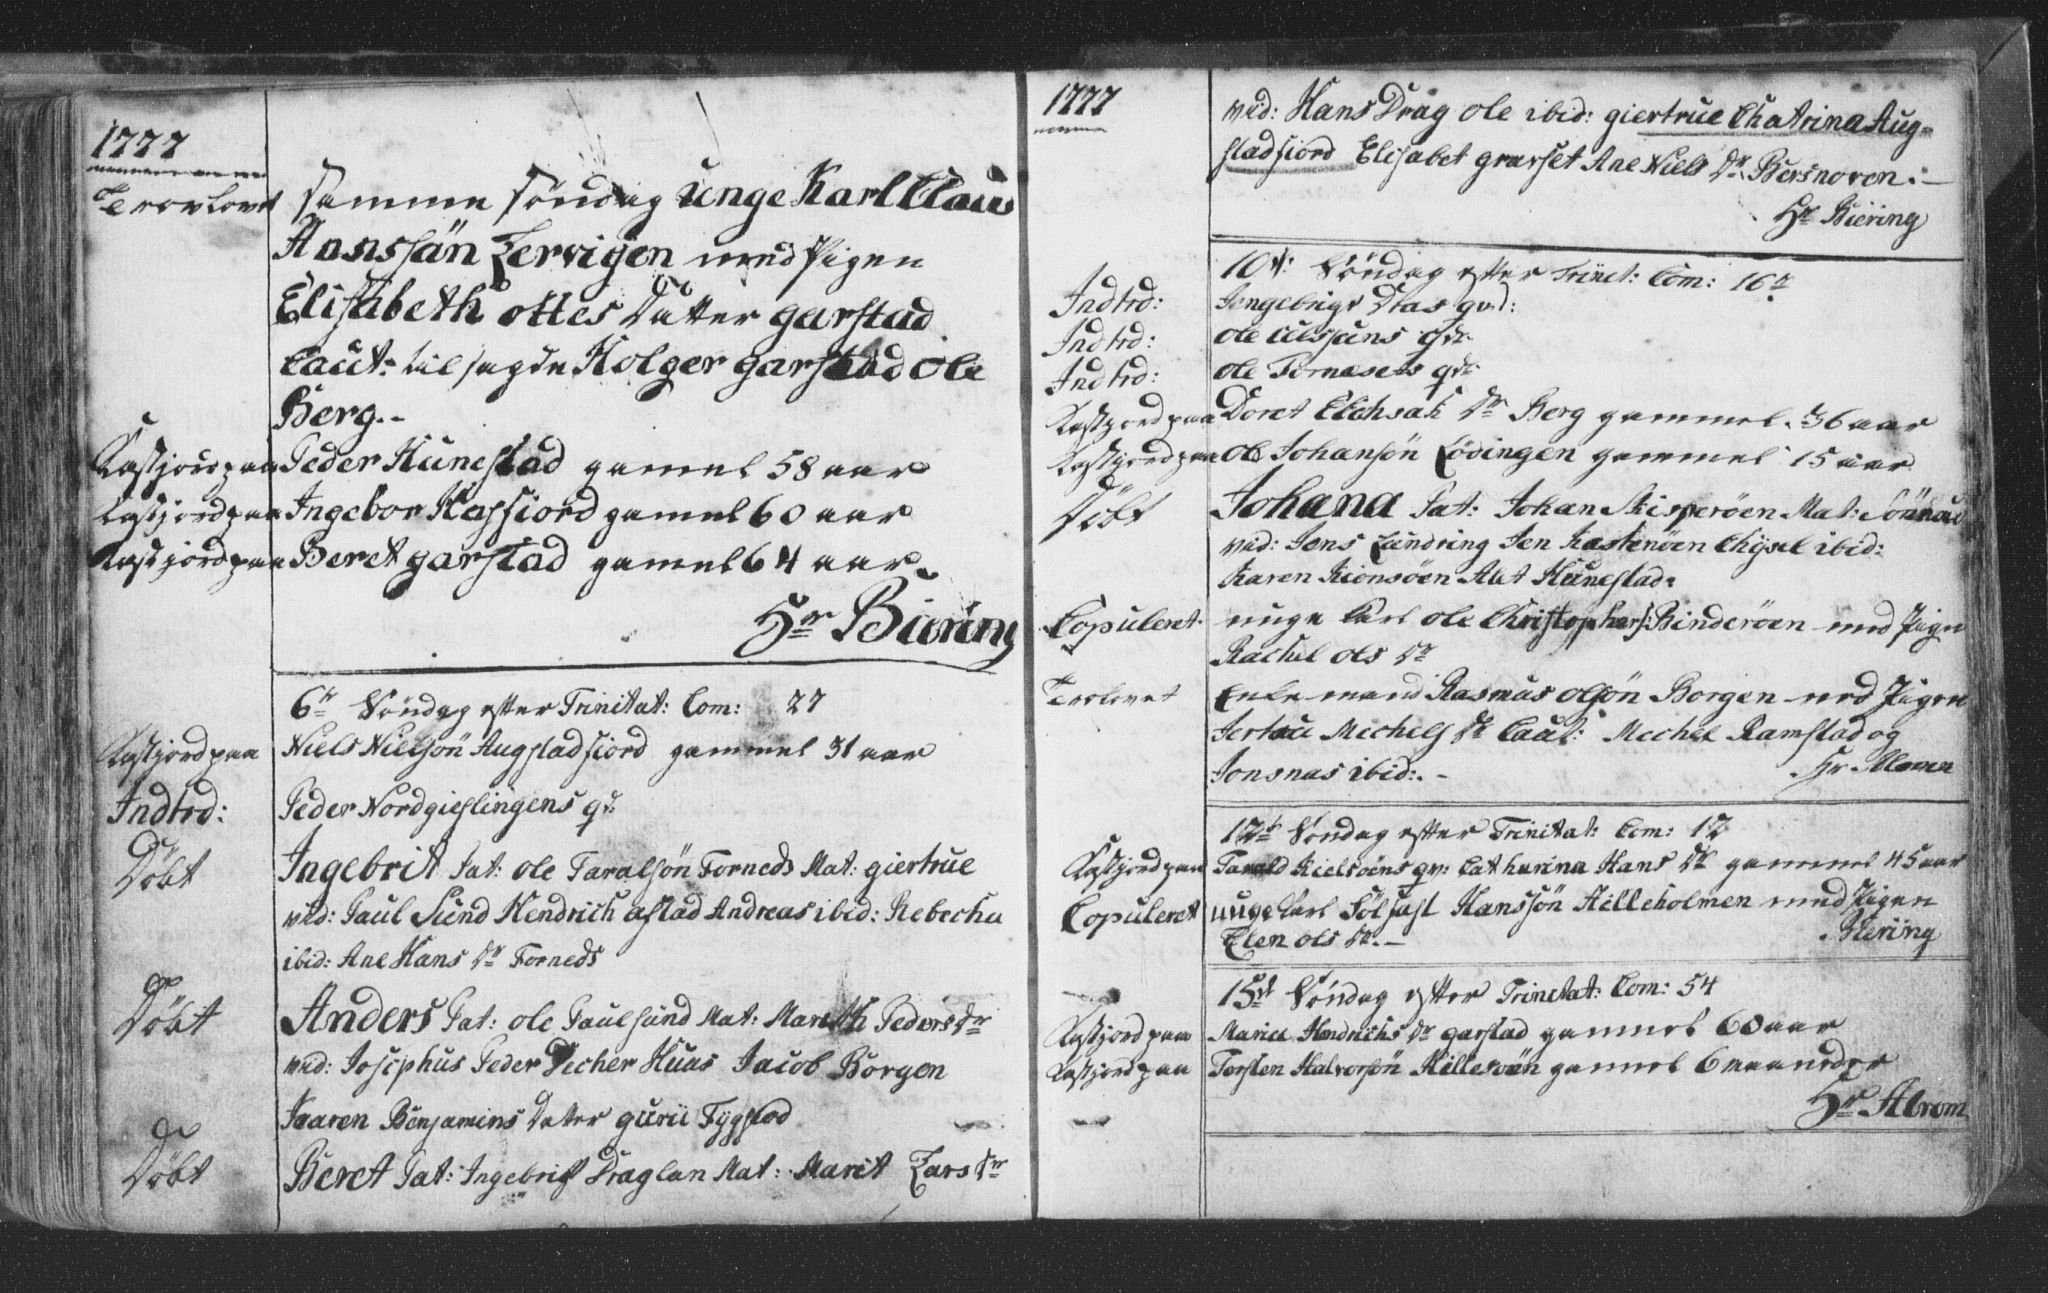 1777
Trovlovet samme Söndag unge Karl Claus
Hanssön Lervigen med Pigen
Elisabeth Ottes Datter garstad
Caut: tilsagde Holger garstad Ole
Berg.-
Kastjord paa Peder Hunestad gamel 58 aar
Kastjord paa Ingebor Kassiord gamel 60 aar
Kastjord paa Beret garstad gamel 64 aar.
Hr Biering
6te Söndag efter Trinitat: Com: 27
Kastjord paa Niels Nielsön Augstadfiord gammel 31 aar
Indtrd: Peder Nordgieslingens qv:
Döbt Ingebrit Pat: ole Taralsön Forneds Mat: giertrue
vid: Paul Sund Hendrich astad Andreas ibid: Rebecha
ibid: Ane Hans Dr Forneds
Döbt Anders Pat: ole Paulsund Mat: Mareth Peders Dr
vid: Josephus Peder Huas Jacob Borgen
Kaaren Benjamins Datter gurii
Döbt Beret Pat: Ingebrigt Draglan Mat: Marit Lars Dr
1777
vid: Hans Drag ole ibid: giertrue Chatrina Aug-
stadfiord Elisabet grarset Ane Niels Dr Bersnoren.-
Hr Biering
10de Söndag efter Trinit: Com: 16
Indtrd: Jngebrigt qvd:
Indtrd: ole qv:
Indtrd: ole Fornesets qv:
Kastjord paa Doret Dr Berg gammel 36 aar
Kastjord paa ole Johansön Lödingen gammel 15 aar
Döbt Johana Pat: Johan Mat:
vid: Jens Jen ibid:
Karen Hunestad
Copuleret unge Karl ole Christophers: Binderöen med Pigen
Rachel ols Dr
Troloved Enke mand Rasmus olsön Borgen med Pigen
Michels Dr Caut: Michel Ramstad og
Jonsnas ibid:.-
Hr
12te Söndag efter Trinitat: Com: 12
Kastjord paa Tarald qv: Catharina Hans Dr gammel 45 aar
Copuleret unge Karl Hanssön Hilleholmen med Pigen
Elen ols Dr.-
Biering
15de Söndag efter Trinitat: Com: 54
Kastjord paa Maria Hendrichs Dr garstad gammel 60 aar
Kastjord paa Torsten Halvorsön gammel 6 maaneder
Hr